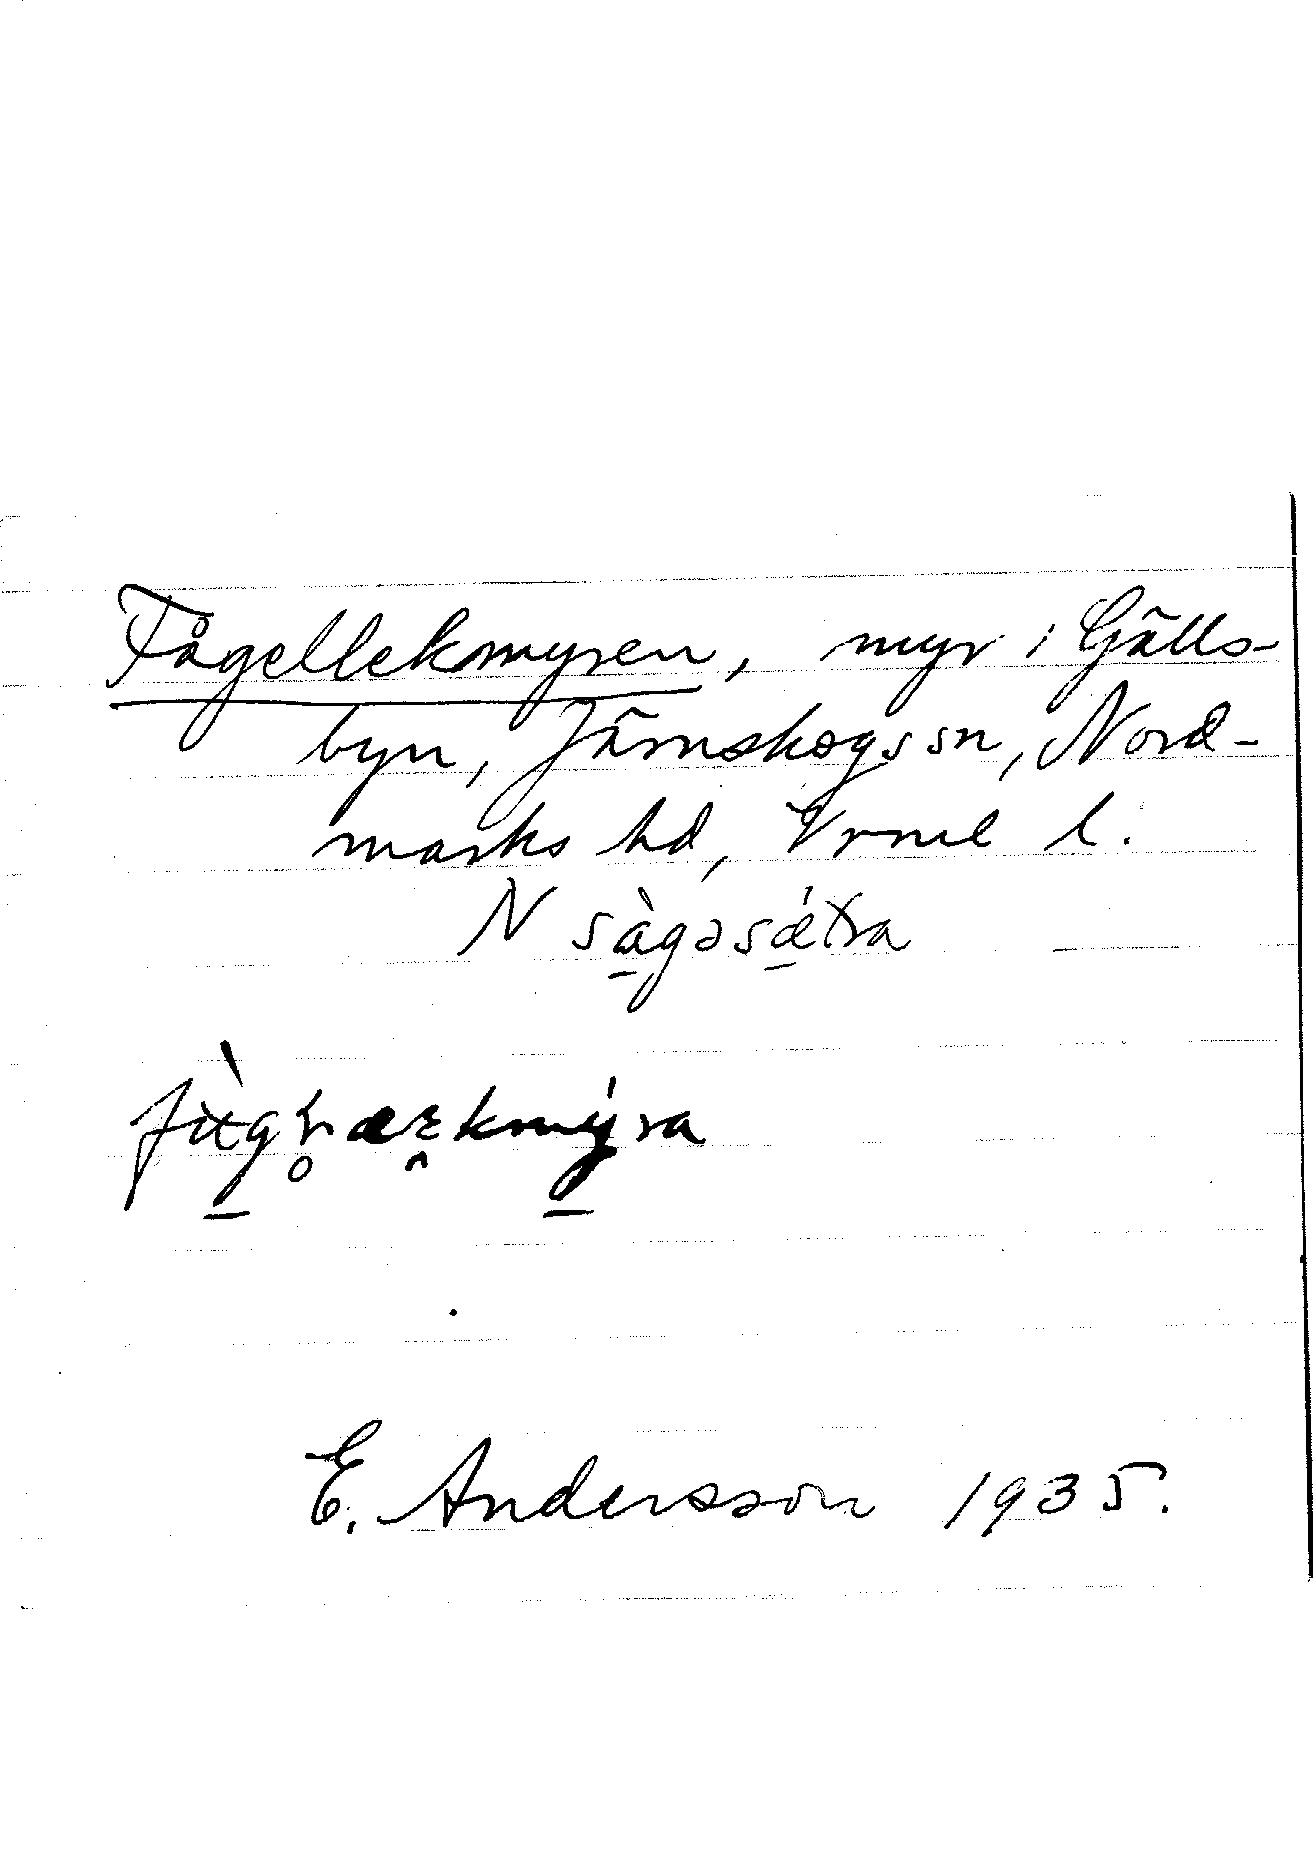 Fågellekmyren, myr i Gälls-
byn, Järnskogs sn, Nord-
marks hd, Vrml l.
N sàgəsǽtra
E. Andersson 1935.